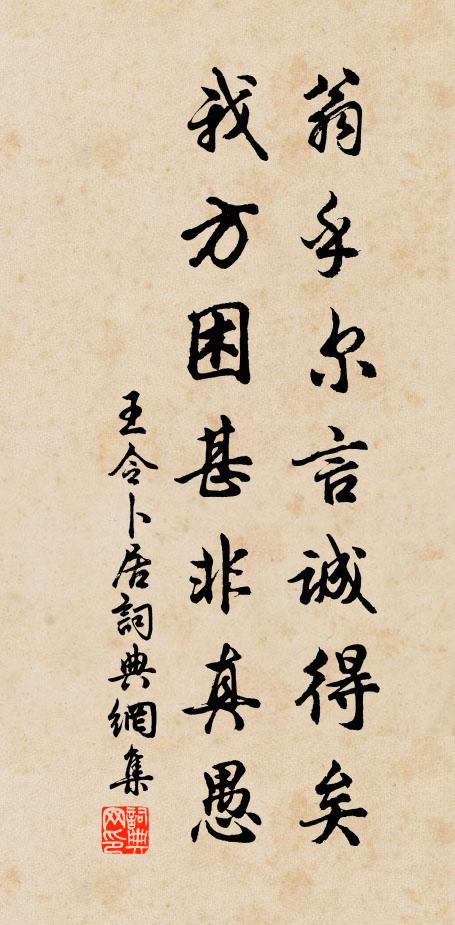 翁乎尔言誠得矣
我方困甚非真愚
王令卜居詞典網集
詞典网印